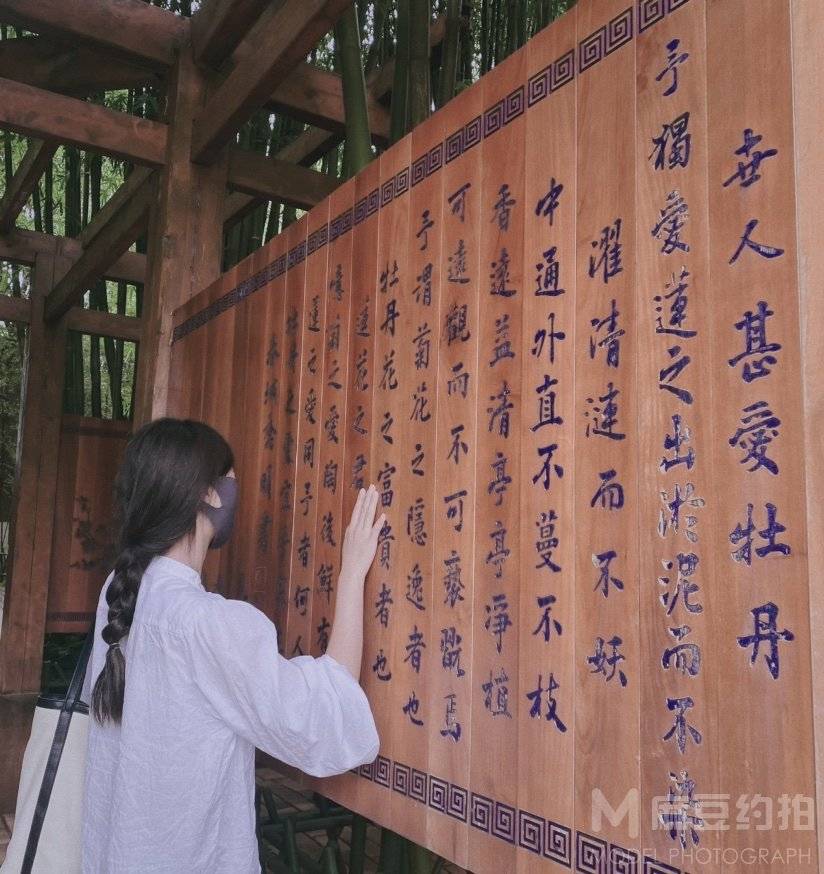 世人甚愛牡丹
予獨愛蓮之出淤泥而不染
濯清漣而不妖
中通外直不蔓不枝
香遠益清亭亭淨植
可遠觀而不可褻翫焉
予謂菊花之隱逸者也
牡丹花之富貴者也
蓮花之君
噫菊之愛陶後鮮有
蓮之愛同予者何人
牡丹之愛宜
麻豆约拍
MODEL PHOTOGRAPH